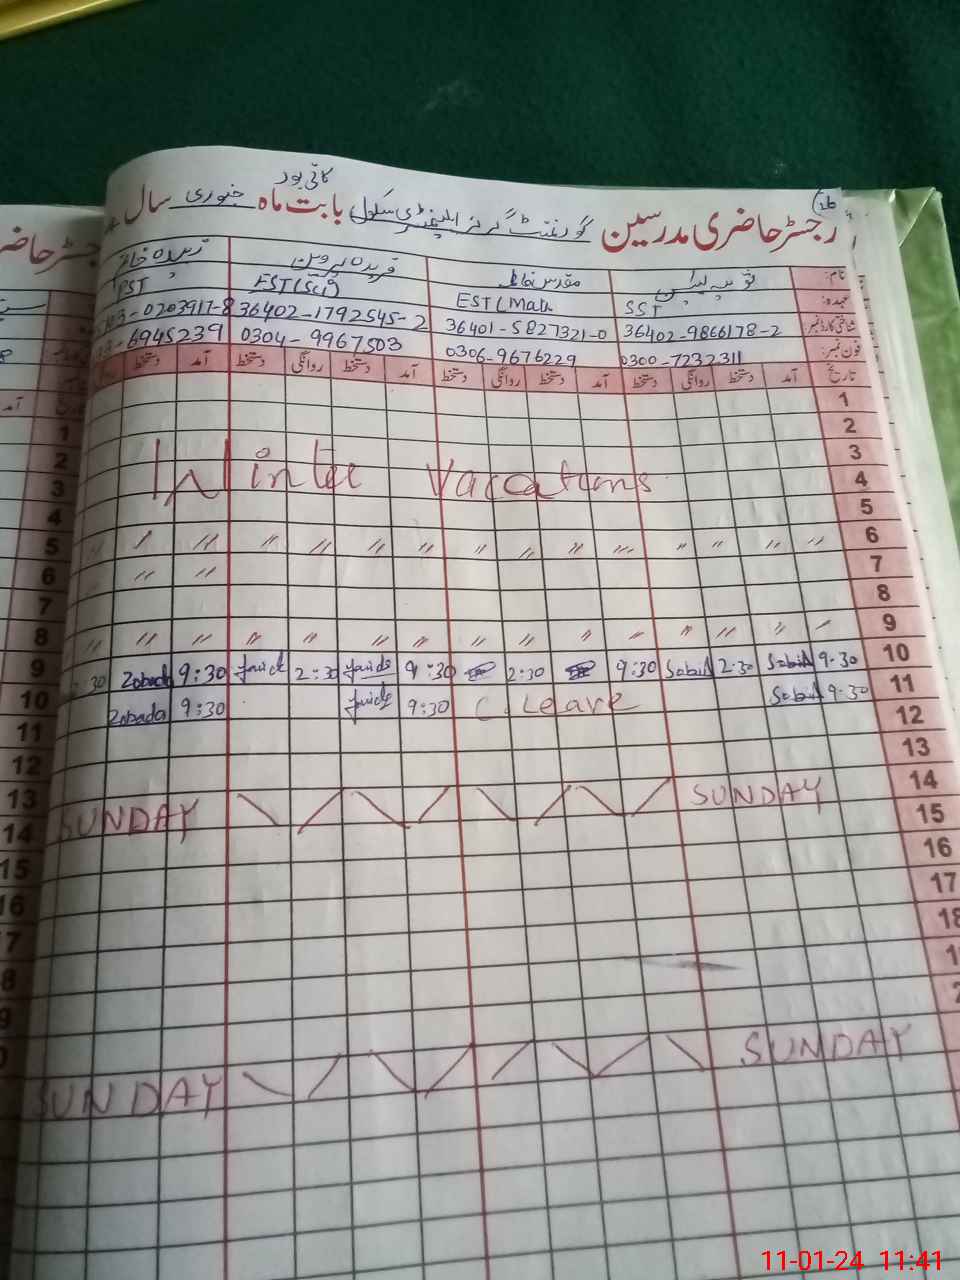 کانی پور
رجسٹر حاضری مدرسین گورنمنٹ گرلز ایلیمنٹری سکول بابت ماہ جنوری سال
نام:
مقدس فاطمہ فریدہ پروین زبیدہ خانم
عہدہ: SST EST(Math EST(Sci) PST
شناختی کارڈ نمبر: 36402-9866178-2 36401-5827321-0 36402-1792545-2 03-0203917-8
فون نمبر: 0300-7232311 0306-9676229 0304-9967503 6945239
تاریخ آمد دستخط روانگی دستخط آمد دستخط روانگی دستخط آمد دستخط روانگی دستخط آمد دستخط
1
2
3
Winter Vacations 4
5
〃 〃 〃 〃 〃 〃 〃 〃 〃 〃 〃 〃 〃 〃 6
〃 〃 7
8
〃 〃 〃 〃 〃 〃 〃 〃 〃 〃 〃 〃 〃 〃 9
30 Zobada 9:30 2:30 9:30 2:30 9:30 2:30 9-30 10
Zobada 9:30 9:30 C. Leave 9-30 11
12
13
SUNDAY SUNDAY 14
15
16
17
18
SUNDAY SUNDAY
آمد
1
2
3
4
5
6
7
8
9
10
11
12
13
14
15
16
11-01-24 11:41